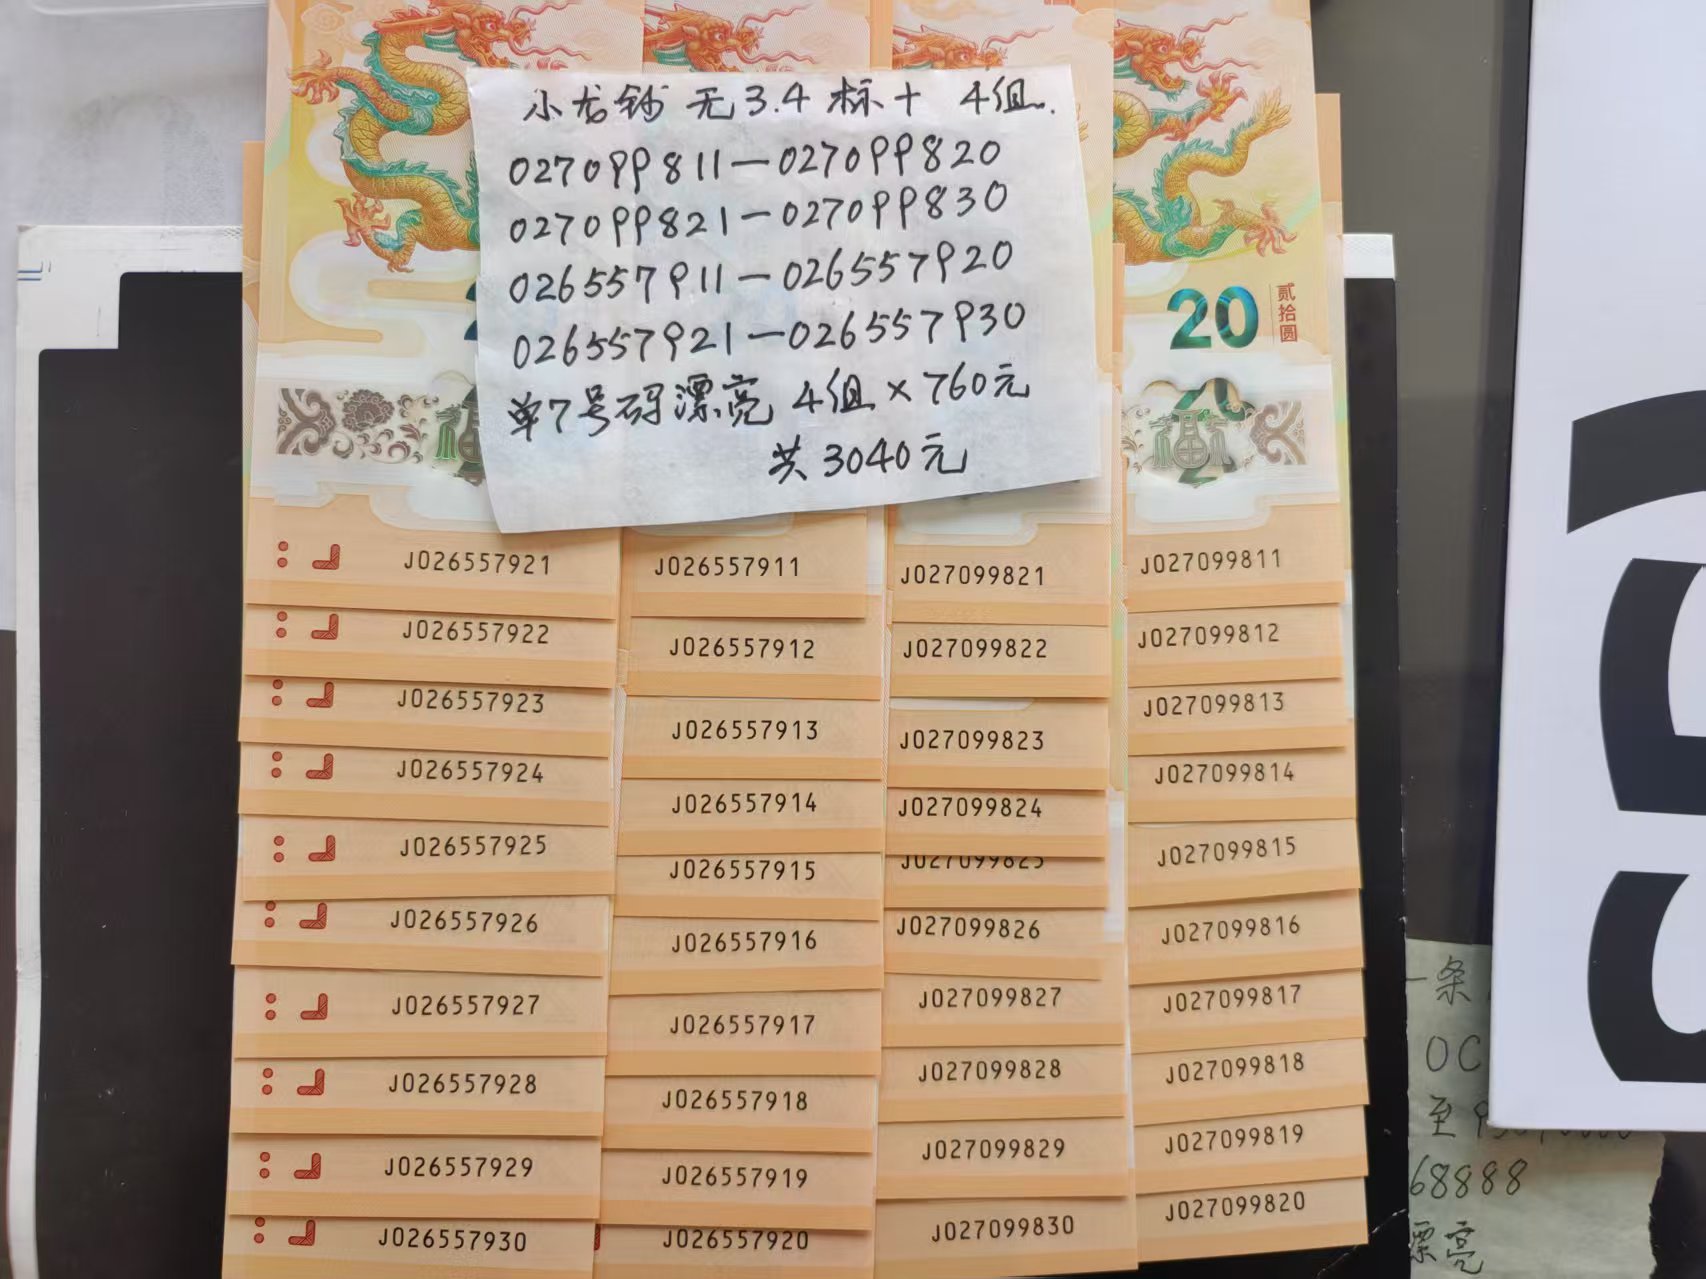 小龙钞 无3.4 标十 4组.
027099811—027099820
027099821—027099830
026557911—026557920
026557921—026557930
单7号码漂亮 4组×760元
共3040元
20
贰拾圆
J026557921
J026557922
J026557923
J026557924
J026557925
J026557926
J026557927
J026557928
J026557929
J026557930
J026557911
J026557912
J026557913
J026557914
J026557915
J026557916
J026557917
J026557918
J026557919
J026557920
J027099821
J027099822
J027099823
J027099824
J027099825
J027099826
J027099827
J027099828
J027099829
J027099830
J027099811
J027099812
J027099813
J027099814
J027099815
J027099816
J027099817
J027099818
J027099819
J027099820
一条
至
68888
漂亮